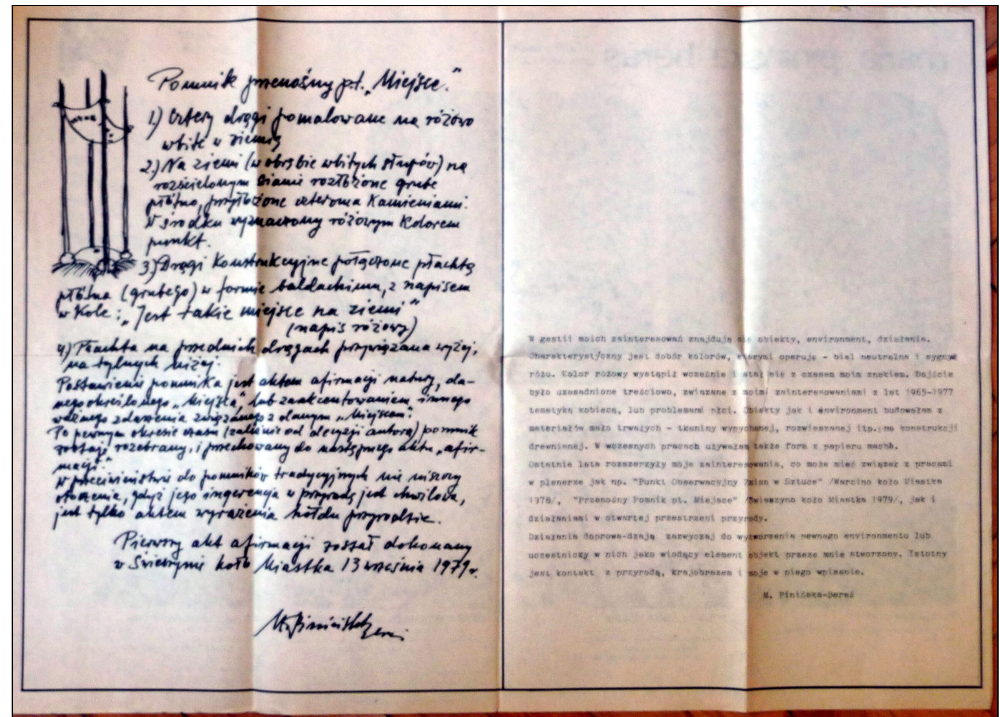 Pomnik przenośny pt. „Miejsce"
1) Cztery drągi pomalowane na różowo
wbite w ziemię
2) Na ziemi (w obrębie wbitych słupów) na
rozścielonym sianie rozłożone grube
płótno, przyłożone czteroma kamieniami.
W środku wyznaczony różowym kolorem
punkt.
3) Drągi konstrukcyjne połączone płachtą
płótna (grubego) w formie baldachimu, z napisem
w kole: „Jest takie miejsce na ziemi"
(napis różowy)
4) Płachta na przednich drągach przywiązana wyżej,
na tylnych niżej.
Postawienie pomnika jest aktem afirmacji natury, da-
nego określonego „Miejsca" lub zaakcentowaniem innego
ważnego zdarzenia związanego z danym „Miejscem".
Po pewnym okresie czasu (zależnie od decyzji autora) pomnik
zostaje rozebrany, i przechowany do następnego aktu „afir-
macji"
W przeciwieństwie do pomników tradycyjnych nie niszczy
otoczenia, gdyż jego ingerencja w przyrodę jest chwilowa,
jest tylko aktem wyrażenia hołdu przyrodzie.
Pierwszy akt afirmacji został dokonany
w Świeszynie koło Miastka 13 września 1979r.
W gestii moich zainteresowań znajdują się obiekty, environment, działania.
Charakterystyczny jest dobór kolorów, którymi operuję - biel neutralna i sygnał
różu. Kolor różowy wystąpił wcześnie i stał się z czasem moim znakiem. Zajście
było uzasadnione treściowo, związane z moimi zainteresowaniami z lat 1965-1977
tematyką kobiecą, lub problemami płci. Obiekty jak i environment budowałam z
materiałów mało trwałych - tkaniny wypychanej, rozwieszanej itp. na konstrukcji
drewnianej. W wczesnych pracach używałam także form z papieru maché.
Ostatnie lata rozszerzyły moje zainteresowania, co może mieć związek z pracami
w plenerze jak np. "Punkt Obserwacyjny Zmian w Sztuce" /Warcino koło Miastka
1978/, "Przenośny Pomnik pt. Miejsce" /Świeszyno koło Miastka 1979/, jak i
działaniami w otwartej przestrzeni przyrody.
Działania doprowa-dzają zazwyczaj do wytworzenia pewnego environmentu lub
uczestniczy w nich jako wiodący element objekt przeze mnie stworzony. Istotny
jest kontakt z przyrodą, krajobrazem i moje w niego wpisanie.
M. Pinińska-Bereś